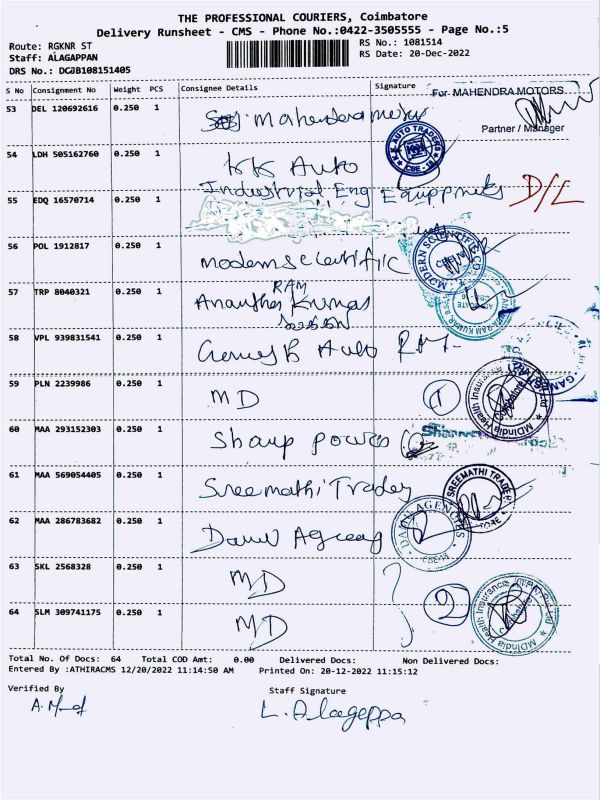 THE PROFESSIONAL COURIERS, Coimbatore
Delivery Runsheet - CMS - Phone No.:0422-3505555 - Page No.:5
Route: RGKNR ST
RS No.: 1081514
Staff: ALAGAPPAN
RS Date: 20-Dec-2022
DRS No.: DCJB108151405
S No Consignment No Weight PCS Consignee Details Signature
For MAHENDRA MOTORS
Partner / Manager
53 DEL 120692616 0.250 1 Mahendra
54 LDH 505162760 0.250 1 KK Auto
K.K. AUTO TRADERS CBE-18
55 EDQ 16570714 0.250 1 Industrial Eng Equippments D/L
56 POL 1912817 0.250 1 modern scientific
MODERN SCIENTIFIC CO.
57 TRP 8040321 0.250 1 RAM
Anantha Kumar
58 VPL 939831541 0.250 1 Auto
59 PLN 2239986 0.250 1 MD 1
MDIndia Health Insurance (TPA) Pvt Ltd Coimbatore
60 MAA 293152303 0.250 1 Sharp power
61 MAA 569054405 0.250 1 Sreemathi Trades
SREEMATHI TRADER
62 MAA 286783682 0.250 1
AGENCIES
63 SKL 2568328 0.250 1 MD
2
64 SLM 309741175 0.250 1 MD
MDIndia Health Insurance (TPA) Pvt Ltd Coimbatore
Total No. Of Docs: 64 Total COD Amt: 0.00 Delivered Docs: Non Delivered Docs:
Entered By :ATHIRACMS 12/20/2022 11:14:50 AM Printed On: 20-12-2022 11:15:12
Verified By Staff Signature
L. Alageppa